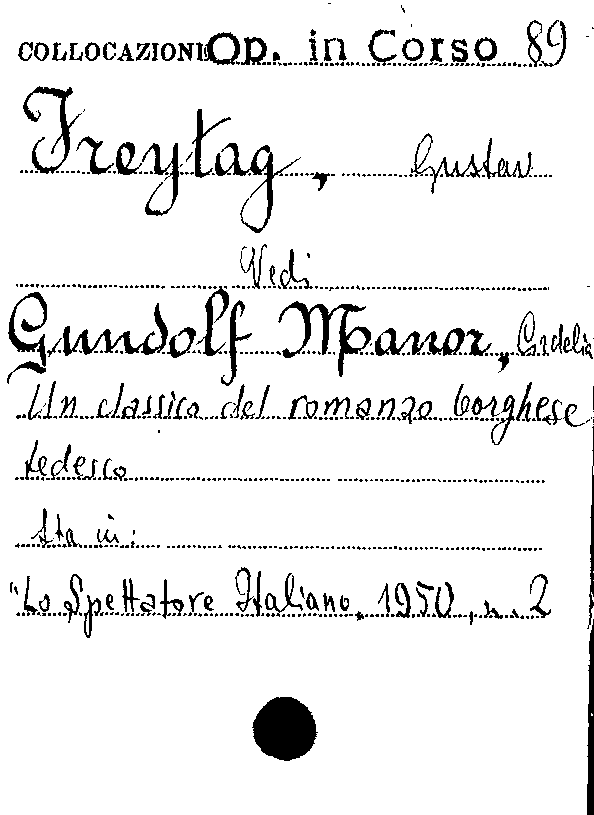 COLLOCAZIONE Op. in Corso 89
Freytag, Gustav
Vedi
Gundolf Manor, Cordelia
Un classico del romanzo borghese
tedesco
Sta in:
"Lo Spettatore Italiano, 1950, n. 2